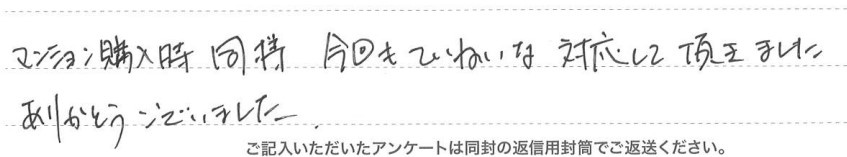 マンション購入時 同様 今回もていねいな 対応して 頂きました
ありがとうございました。
ご記入いただいたアンケートは同封の返信用封筒でご返送ください。